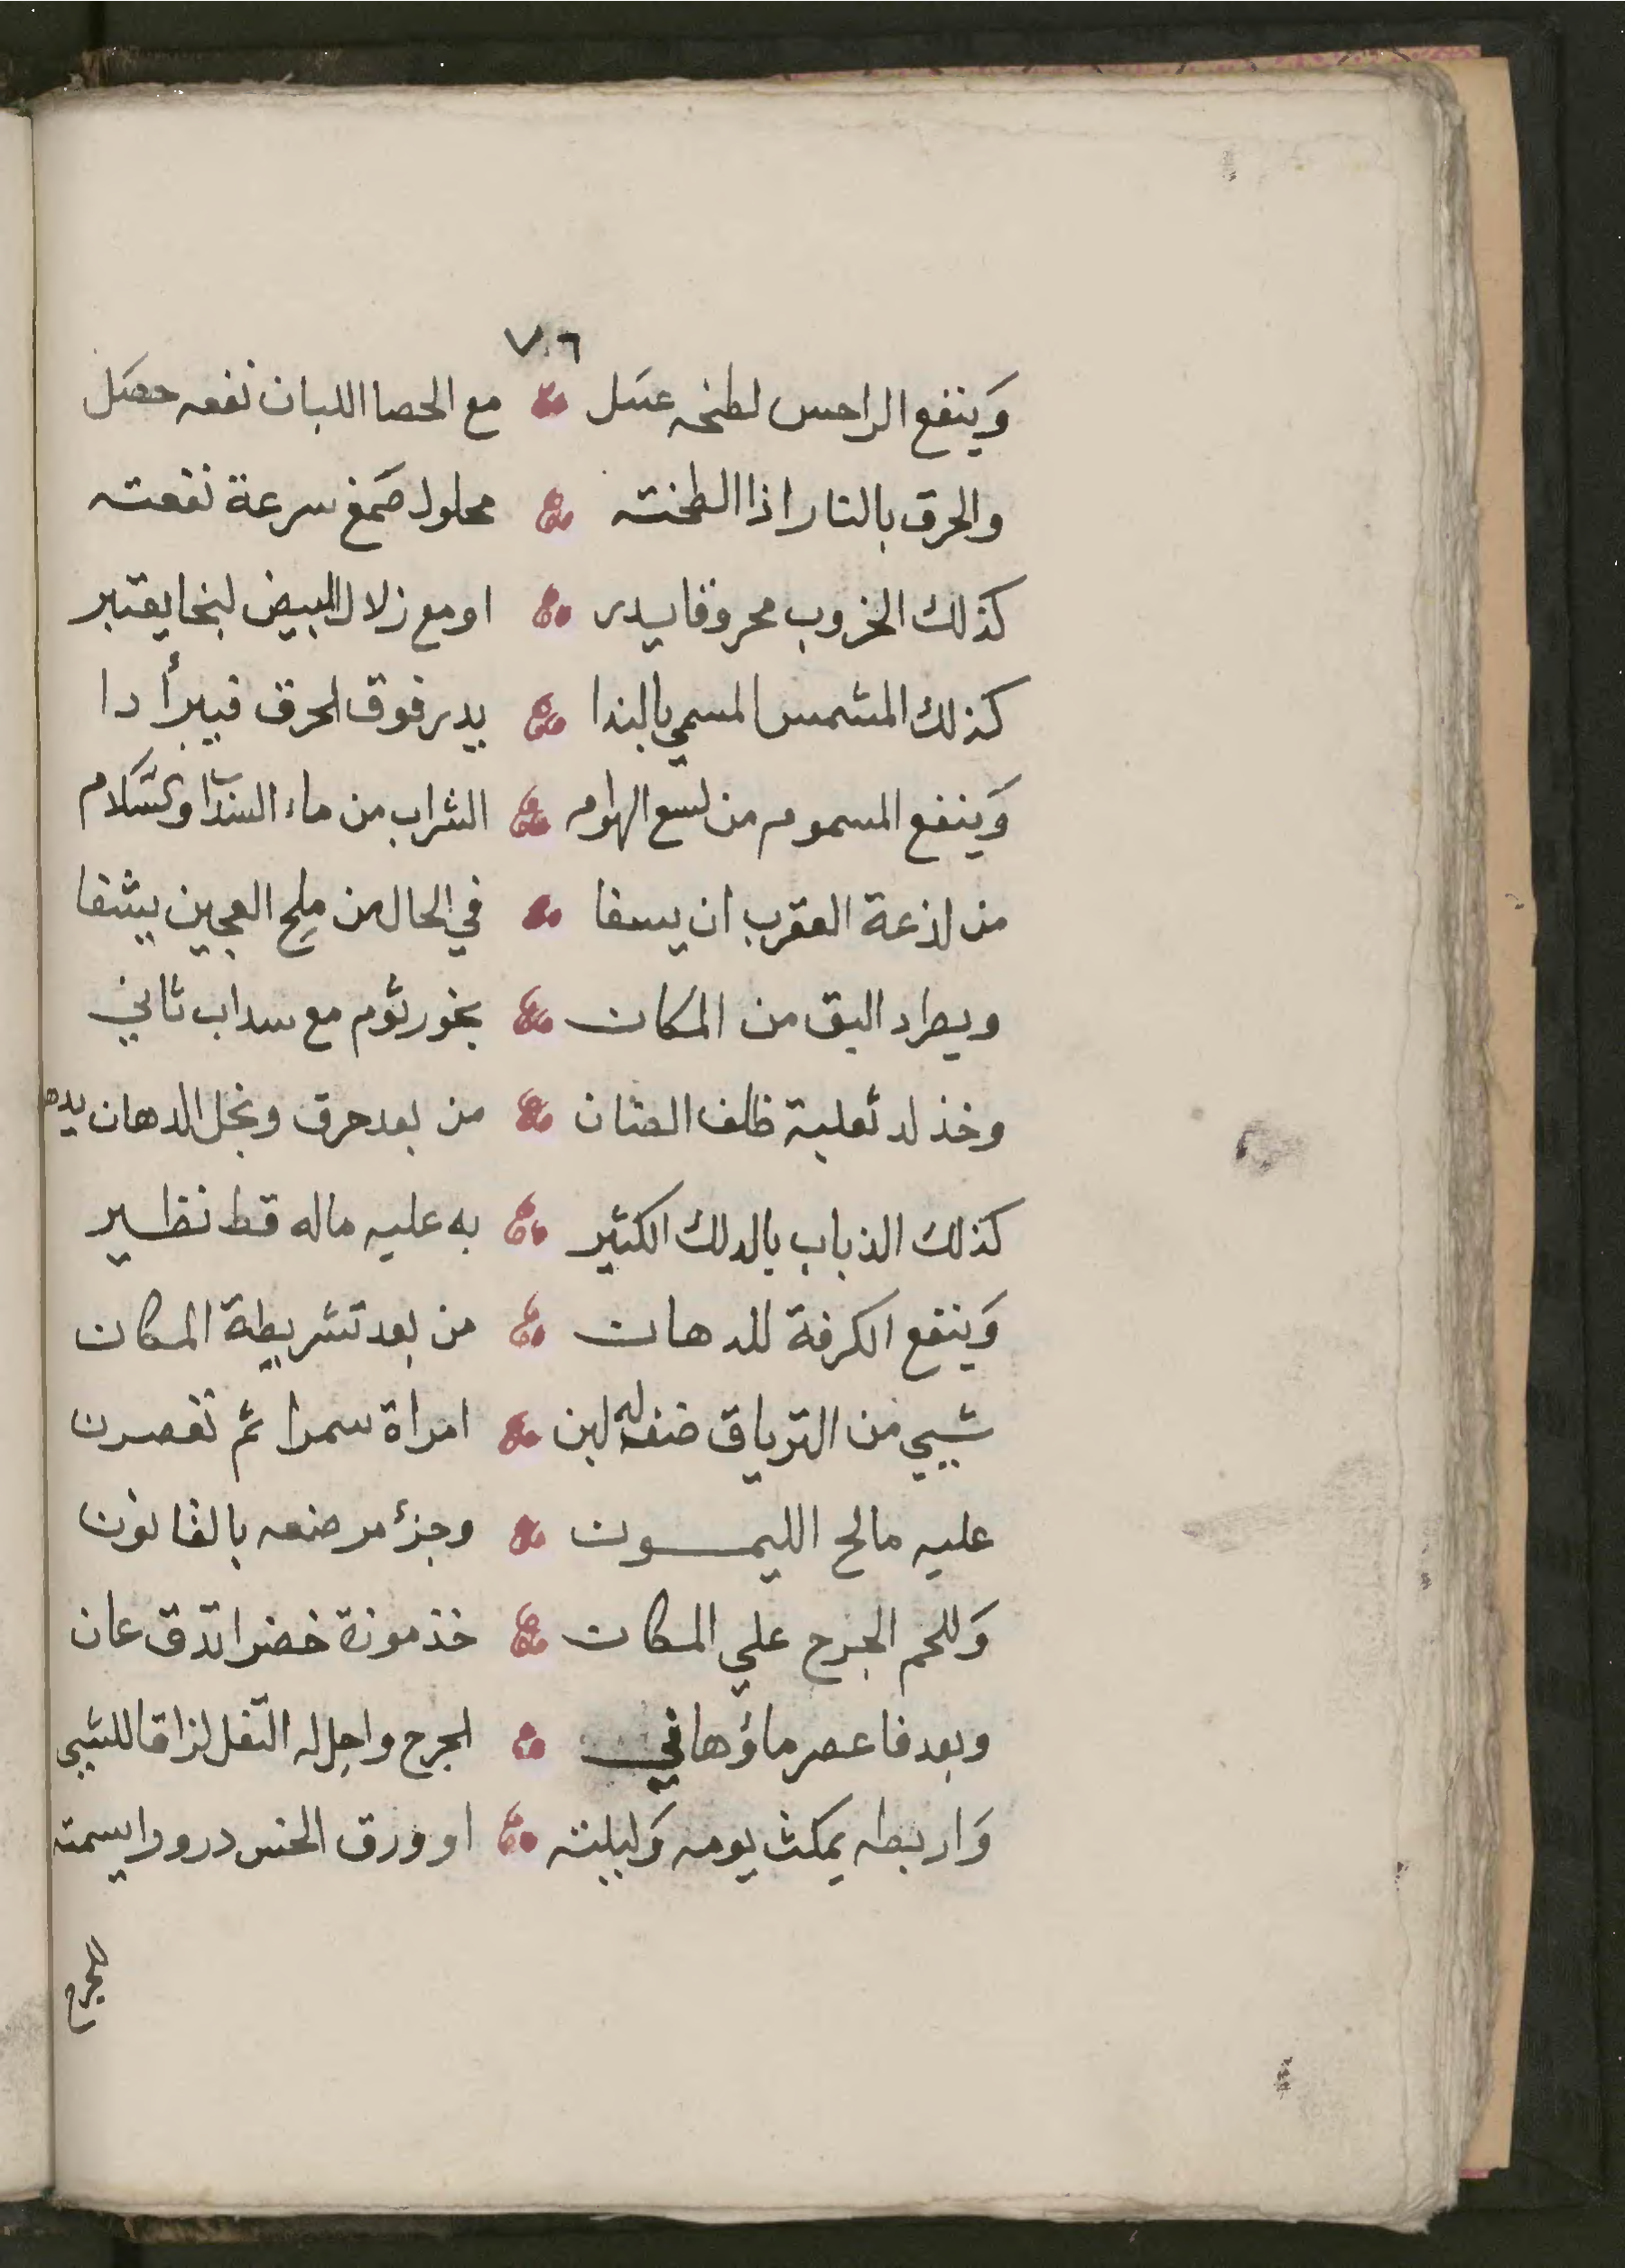 ٧٠٦
وَينفع الراحس لطخه عسَل مع الحصا اللبان نفعه حصَل
والحرق بالنار اذا الطخته محلول صَمغ سرعة نفعته
كذلك الخروب محروقا يدر او مع زلال البيض لبخا يعتبر
كذلك المشمس المسمي بالندا يدر فوق الحرق فيبرأ دا
وَينفع المسموم من لسع الهوام الشراب من ماء السنداب والسَّلام
من لذعة العقرب ان يسفا في الحال من ملح العجين يشفا
ويطرد البق من المكان بخور ثوم مع سداب ثاني
وخذ لد ثعلبة ظلف الضان من بعد حرق ونخل الدهان
كذلك الذباب بالدلك الكثير به عليه ماله قط نظير
وَينفع الكرفة للدهان من بعد تشريطة المكان
شيي من الترياق ضفه له لبن امراة سمرا ثم تعصرن
عليه مالح الليمون وجزء مر ضعه بالقانون
وَللحم الجرح علي المكان خذ موزة خضرا تدق عان
وبعد فاعصر ماؤها في الجرح واجل له التفل لزاقا للشيي
وَاربطه يمكث يومه وَليلته او ورق الخس درورا يسمته
للجرح